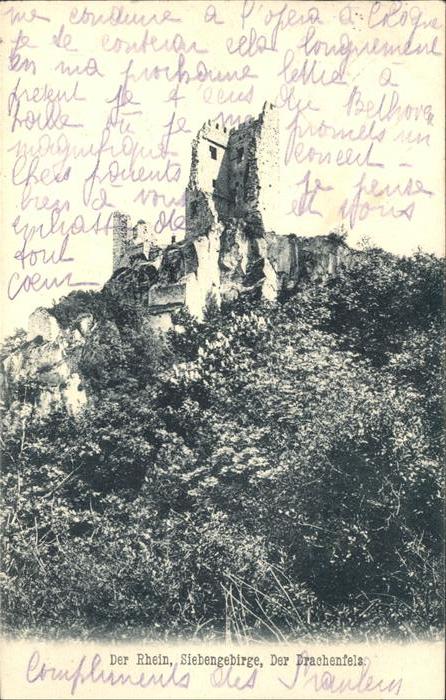 me conduire à l'opéra à Cologne
je te conterai cela longuement
en ma prochaine lettre à
présent je t'écris du Bethhov
salle où je me promets un
magnifique concert —
chers parents je pense
bien à vous et vous
de
tout
cœur
Der Rhein, Siebengebirge, Der Drachenfels.
Compliments des